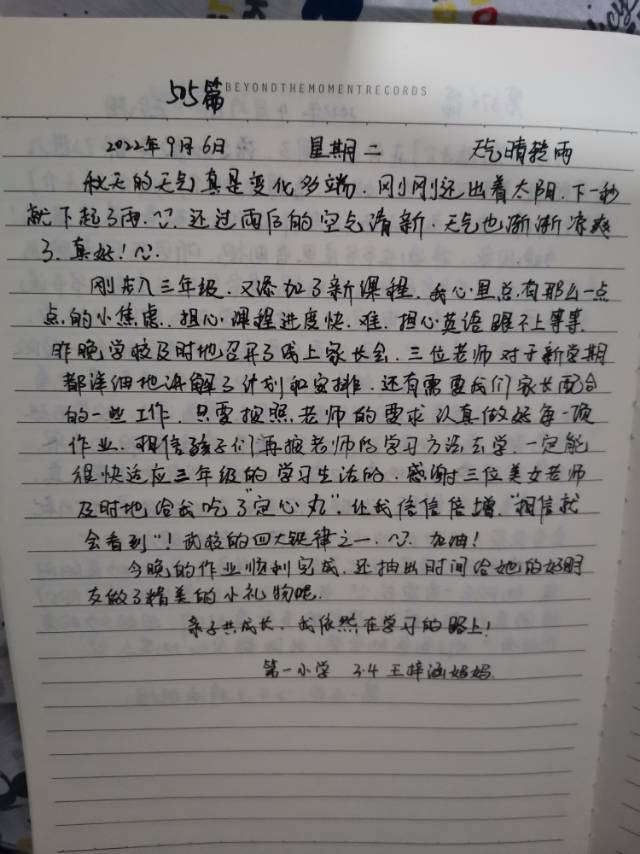 BEYONDTHEMOMENTRECORDS
505篇
2022年9月6日 星期二 天气晴转雨
秋天的天气真是变化多端.刚刚还出着太阳.下一秒
就下起了雨.还过雨后的空气清新.天气也渐渐凉爽
了.真好!
刚步入三年级.又添加了新课程.我心里总有那么一点
点的小焦虑.担心课程进度快.难.担心英语跟不上等等.
昨晚学校及时地召开了线上家长会.三位老师对于新学期
都详细地讲解了计划和安排.还有需要我们家长配合
的一些工作.只要按照老师的要求认真做好每一项
作业.相信孩子们再按老师的学习方法去学.一定能
很快适应三年级的学习生活的.感谢三位美女老师
及时地给我吃了"定心丸".让我倍信倍增."相信就
会看到"!武校的四大规律之一.加油!
今晚的作业顺利完成.还抽出时间给她的好朋
友做了精美的小礼物呢.
亲子共成长.我依然在学习的路上!
第一小学 3.4 王梓涵妈妈.